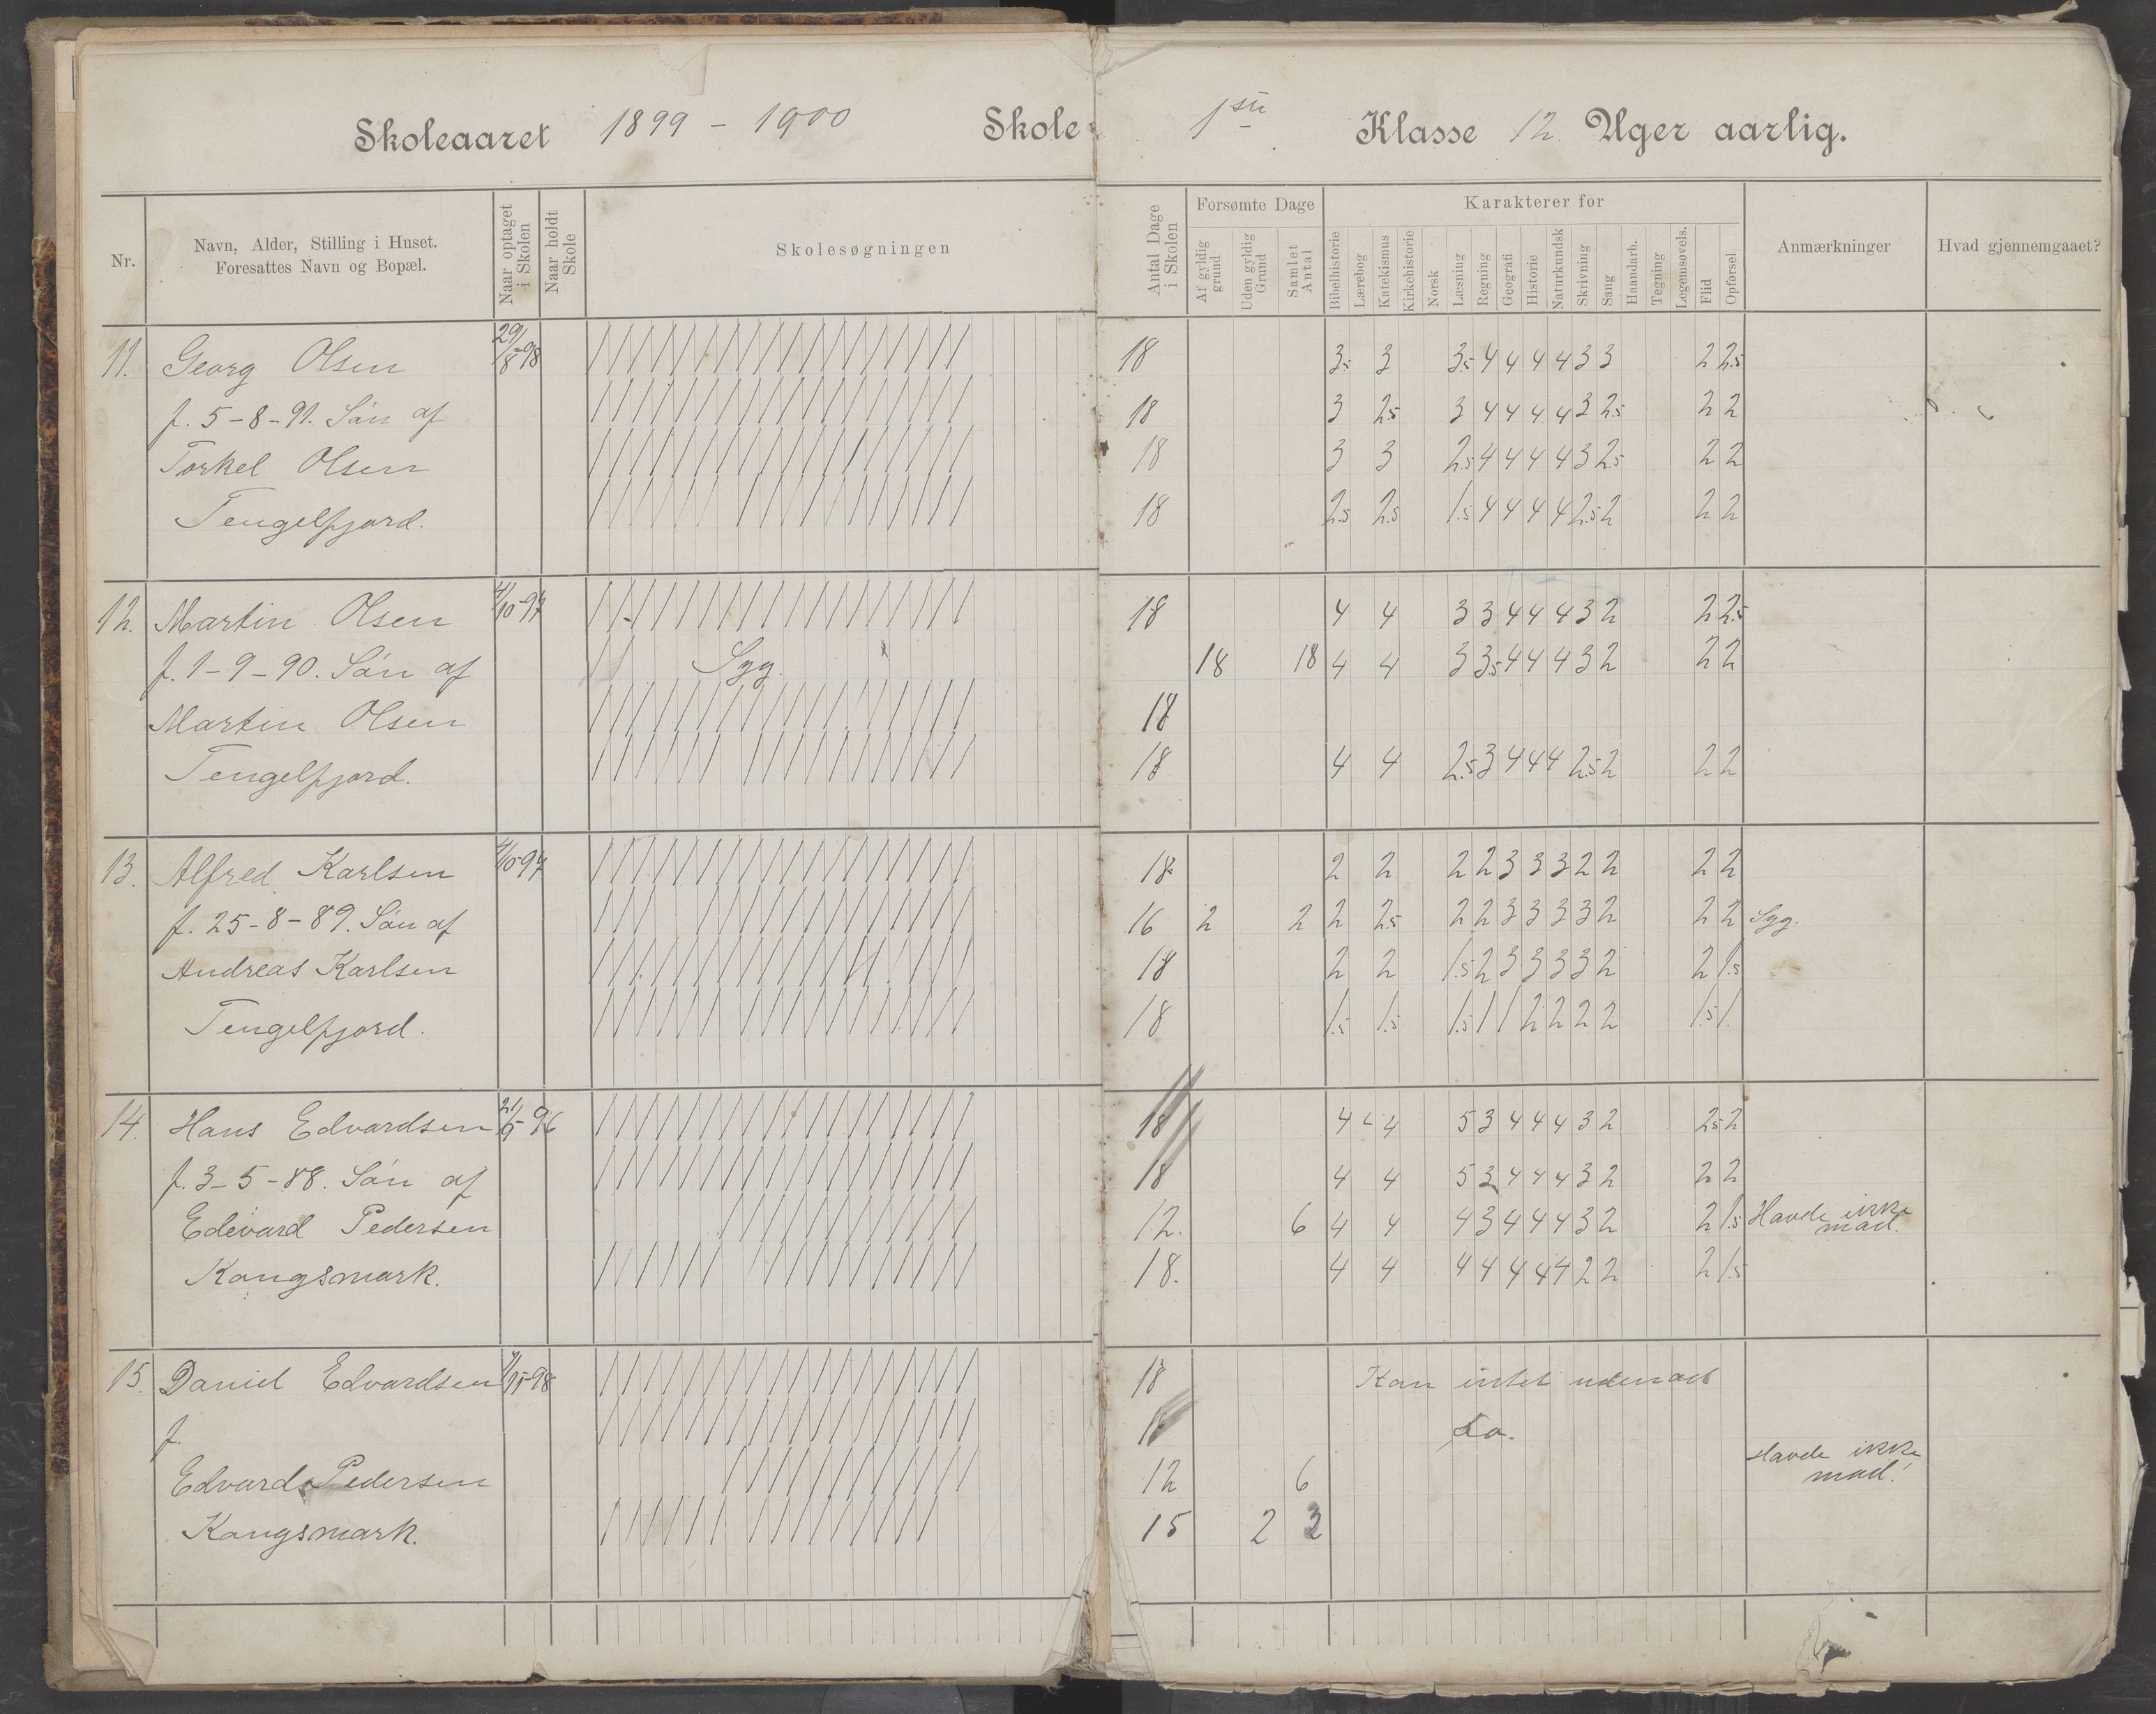 Skoleaaret 1899 - 1900 Skole 1ste Klasse 12 Uger aarlig.
Nr.
Navn, Alder, Stilling i Huset.
Foresattes Navn og Bopæl.
Naar optaget i Skolen
Naar holdt Skole
Skolesøgningen
Antal Dage i Skolen
Forsømte Dage
Af gyldig grund
Uden gyldig Grund
Samlet Antal
Karakterer for
Bibelhistorie
Lærebog
Katekismus
Kirkehistorie
Norsk
Læsning
Regning
Geografi
Historie
Naturkundsk
Skrivning
Sang
Haandarb.
Tegning
Legemsøvels.
Flid
Opførsel
Anmærkninger
Hvad gjennemgaaet?
11. Georg Olsen 29/8-98 18 3.5 3 3.5 4 4 4 4 3 3 2 2.5
f. 5-8-91. Søn af 18 3 2.5 3 4 4 4 4 3 2.5 2 2
Torkel Olsen 18 3 3 2.5 4 4 4 4 3 2.5 2 2
Tengelfjord. 18 2.5 2.5 1.5 4 4 4 4 2.5 2 2 2
12. Martin Olsen 4/10-97 18 4 4 3 3 4 4 4 3 2 2 2.5
f. 1-9-90. Søn af Syg. 18 18 4 4 3 3.5 4 4 4 3 2 2 2
Martin Olsen 18
Tengelfjord. 18 4 4 2.5 3 4 4 4 2.5 2 2 2
13. Alfred Karlsen 4/10-97 18 2 2 2 2 3 3 3 2 2 2 2
f. 25-8-89. Søn af 16 2 2 2 2.5 2 2 3 3 3 3 2 2 2 Syg.
Andreas Karlsen 18 2 2 1.5 2 3 3 3 3 2 2 1.5
Tengelfjord. 18 1.5 1.5 1.5 1 1 2 2 2 2 1.5 1.
14. Hans Edvardsen 21/9 96 18 4 4 5 3 4 4 4 3 2 2.5 2
f. 3-5-88. Søn af 18 4 4 5 3 4 4 4 3 2 2 2
Edevard Pedersen 12. 6 4 4 4 3 4 4 4 3 2 2 1.5 Havde ikke mad.
Kongsmark. 18. 4 4 4 4 4 4 4 2 2 2 1.5
15. Daniel Edvardsen 18 Kan intet udenad
f. 18 do.
Edvard Pedersen 12 6 Havde ikke mad!
Kongsmark. 15 2 3